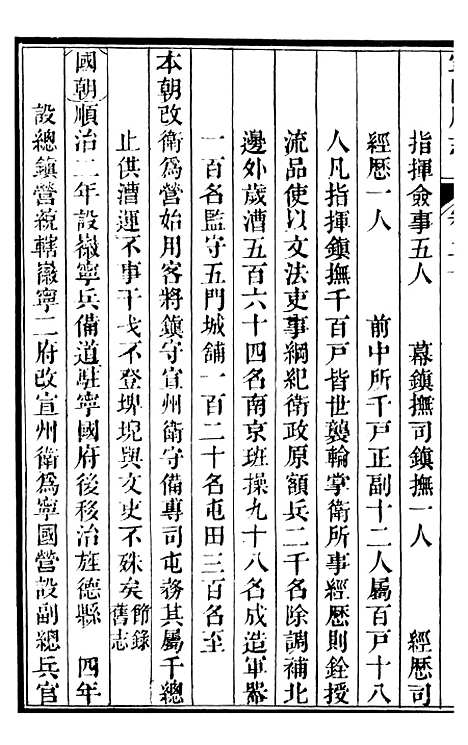 指揮僉事五人　幕鎮撫司鎮撫一人　經歷司
經歷一人　前中所千戸正副十二人屬百戸十八
人凡指揮鎮撫千百戸皆世襲輪掌衛所事經歷則銓授
流品使以文法吏事綱紀衛政原額兵二千名除調補北
邊外歲漕五百六十四名南京班操九十八名成造軍器
一百名監守五門城舖一百二十名屯田三百名至
本朝改衛爲營始用客將鎮守宣州衛守備專司屯務其屬千總
止供漕運不事干戈不登埤堄與文吏不殊矣節錄舊志
國朝順治二年設徽寧兵備道駐寧國府後移治旌德縣　四年
設總鎮營統轄徽寧二府改宣州衛爲寧國營設副總兵官